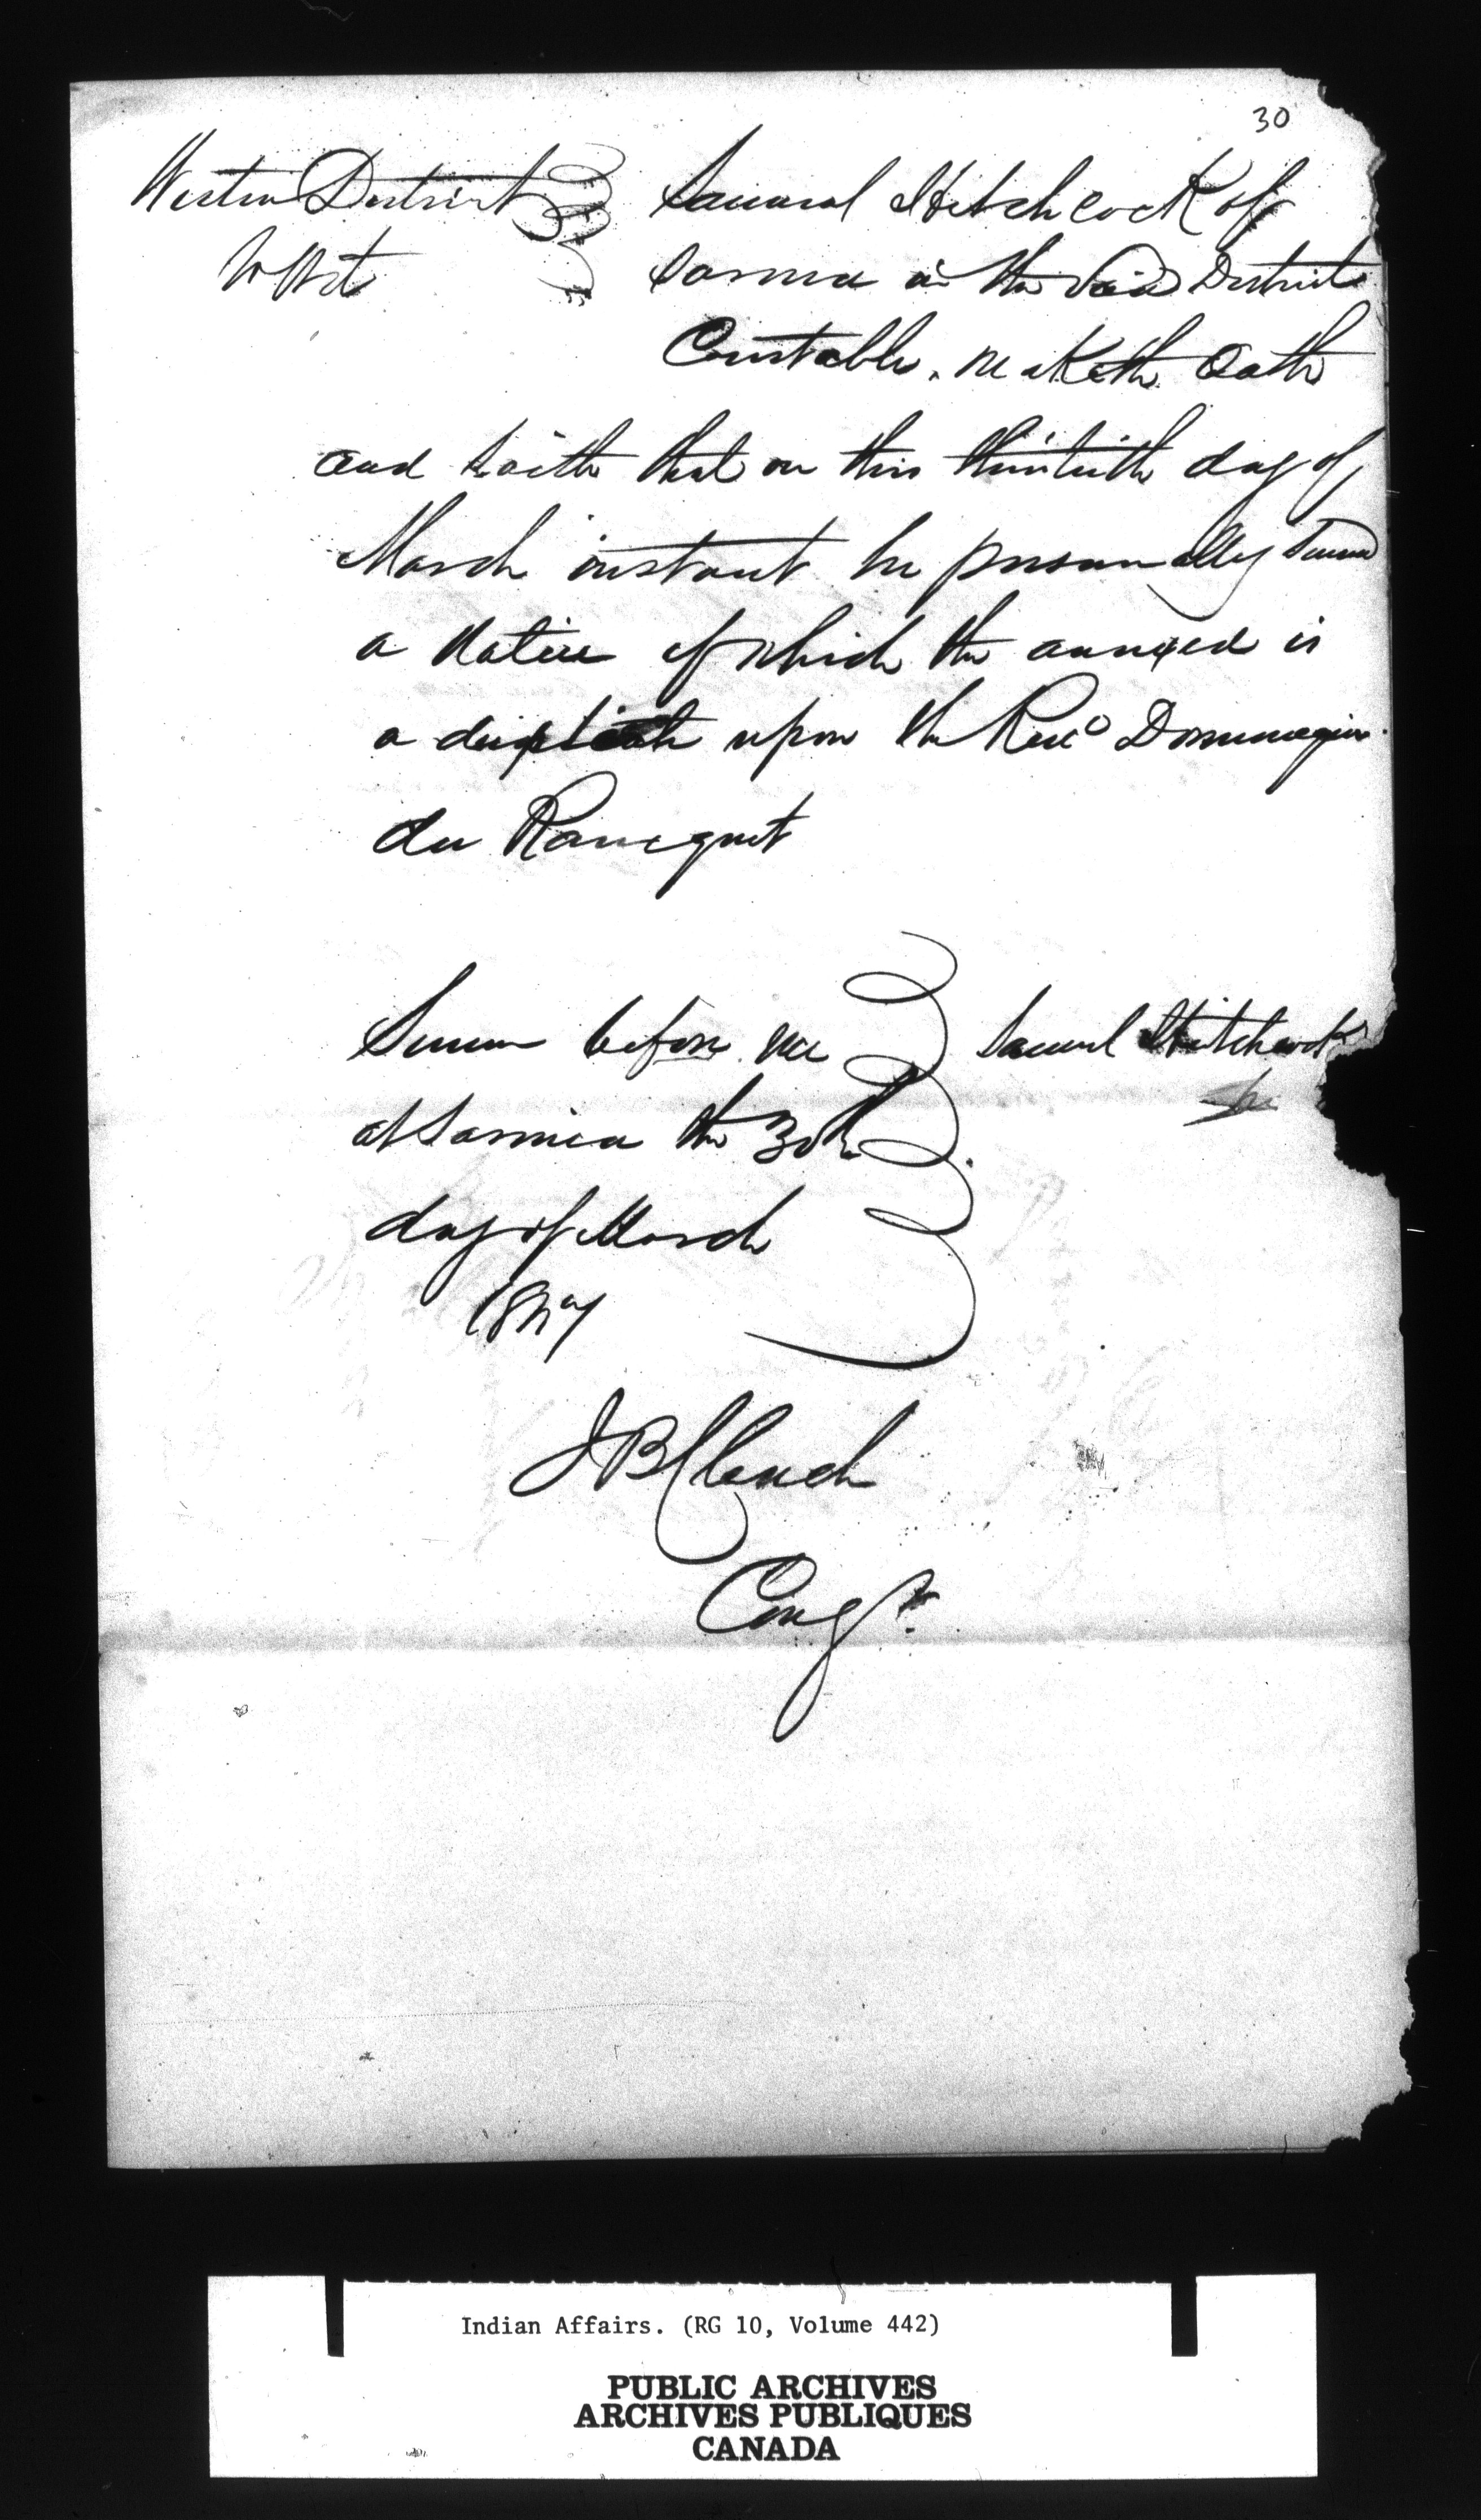 30
Western District Samuel Hitchcock of
to Wit Sarnia in the said District
Constable. maketh Oath
and saith that on this thirtieth day of
March instant he personally served
a Notice of which the annexed is
a duplicate upon the Revd Dominique
du Ranquet
Sworn before me Samuel Hitchcock
at Sarnia the 30th
day of March
1847
J B Clench
Comr
Indian Affairs. (RG 10, Volume 442)
PUBLIC ARCHIVES
ARCHIVES PUBLIQUES
CANADA